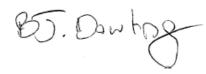 B.J. Dowling